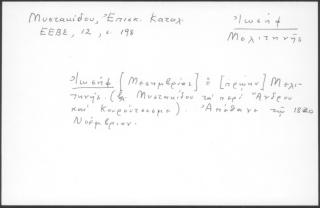 Μυστακίδου, Ἐπισκ. Καταλ.
ΕΕΒΣ, 12, σ. 198
Ἰωσήφ
Μελιτηνῆς
Ἰωσήφ [Μεσημβρίας] ὁ [πρῴην] Μελι-
τηνῆς. Μυστακίδου τὰ περὶ Ἄνδρου
καὶ Κουρούτσεσμε). Ἀπέθανε τῇ 1820
Νοέμβριον.